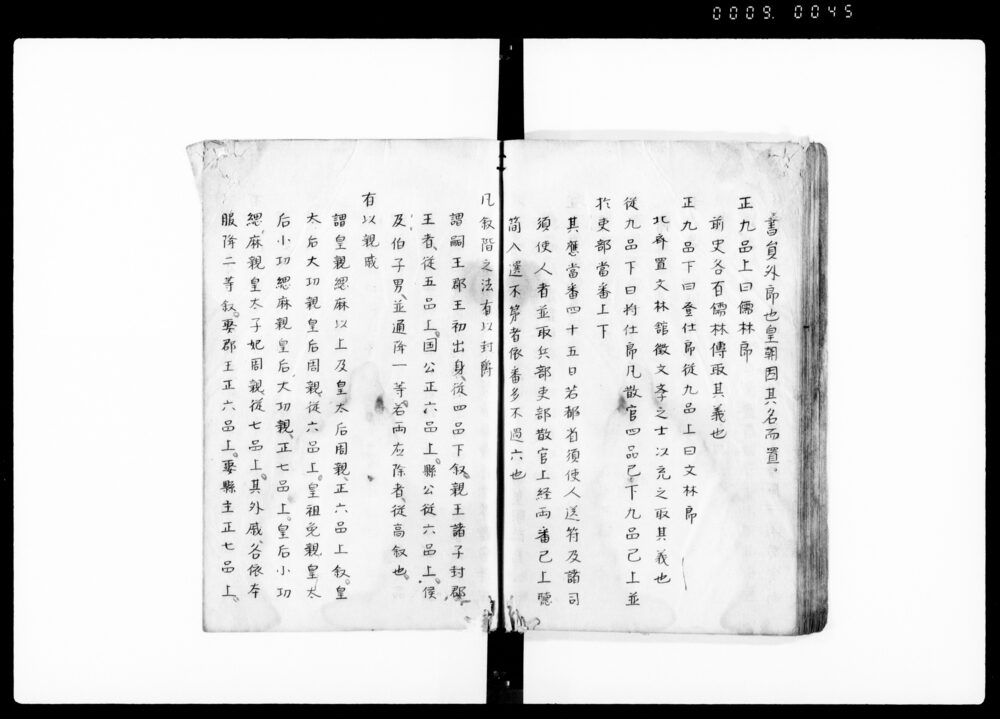 0009. 0045
書員外郎也皇朝因其名而置。
正九品上曰儒林郎
前史各有儒林傳取其義也
正九品下曰登仕郎從九品上曰文林郎
北齊置文林舘徵文学之士以充之取其義也
從九品下曰將仕郎凡散官四品已下九品已上並
於吏部當番上下
其應當番四十五日若都省須使人送符及諸司
須使人者並取兵部吏部散官上経両番已上聽
簡入選不第者依番多不過六也
凡叙階之法有以封爵
謂嗣王郡王初出身、從四品下叙。親王諸子封郡
王者、從五品上。国公正六品上。縣公從六品上。侯
及伯子男、並通降一等。若両应除者、從高叙也。
有以親戚
謂皇親緦麻以上及皇太后周親、正六品上叙。皇
太后大功親皇后周親、從六品上。皇祖免親皇太
后小功緦麻親皇后大功親、正七品上。皇后小功
緦麻親皇太子妃周親、從七品上。其外戚、各依本
服降二等叙。娶郡王正六品上。娶縣主正七品上。